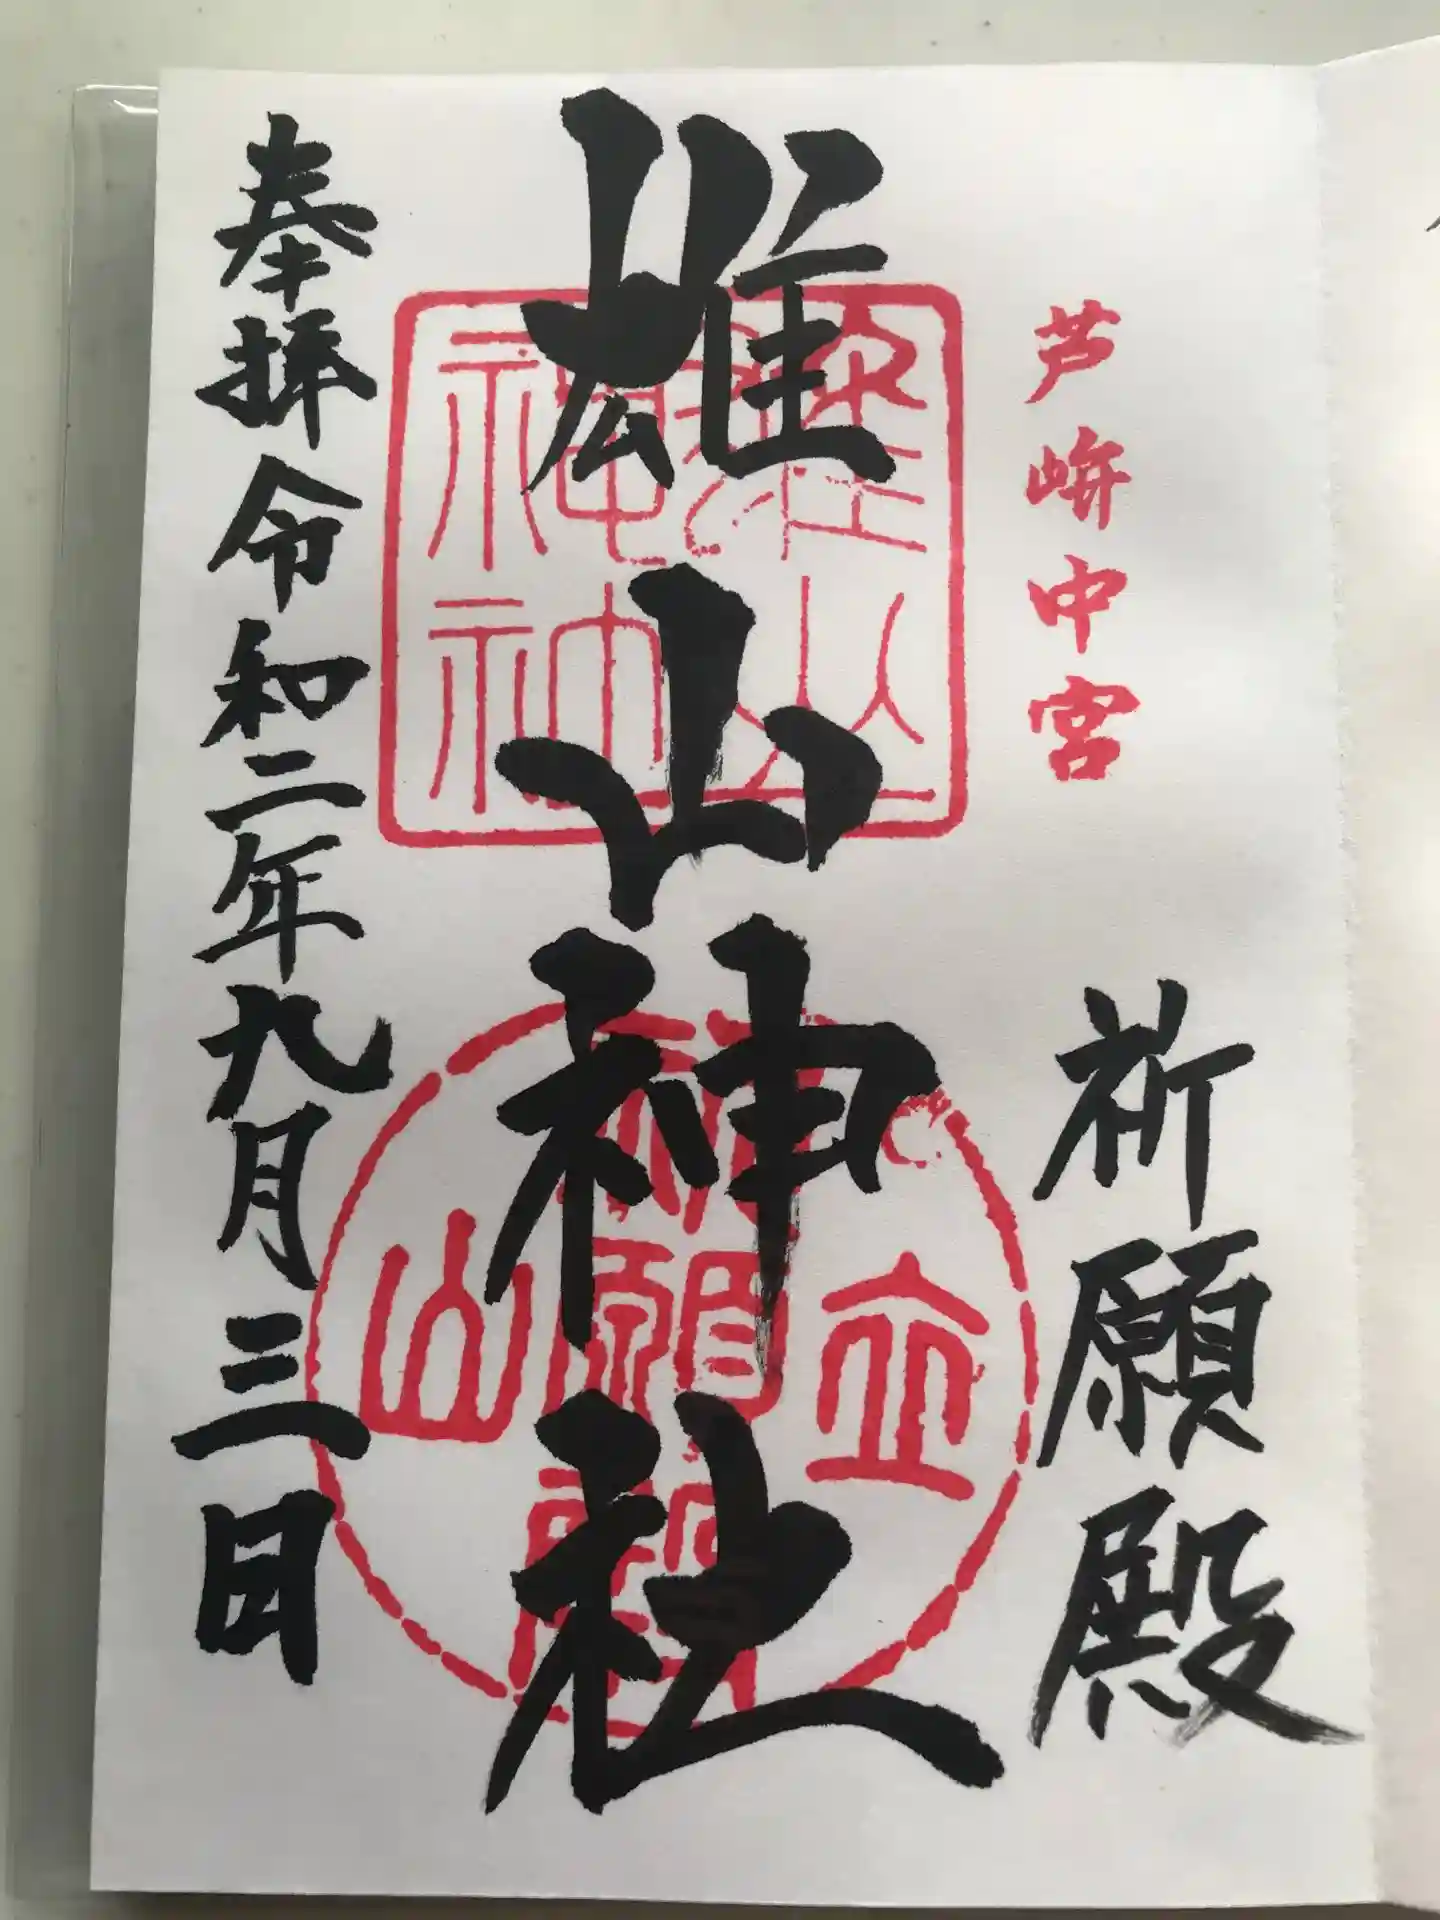 芦峅中宮
祈願殿
雄山神社
奉拝 令和二年九月三日
雄山
神社
立山
祈願殿